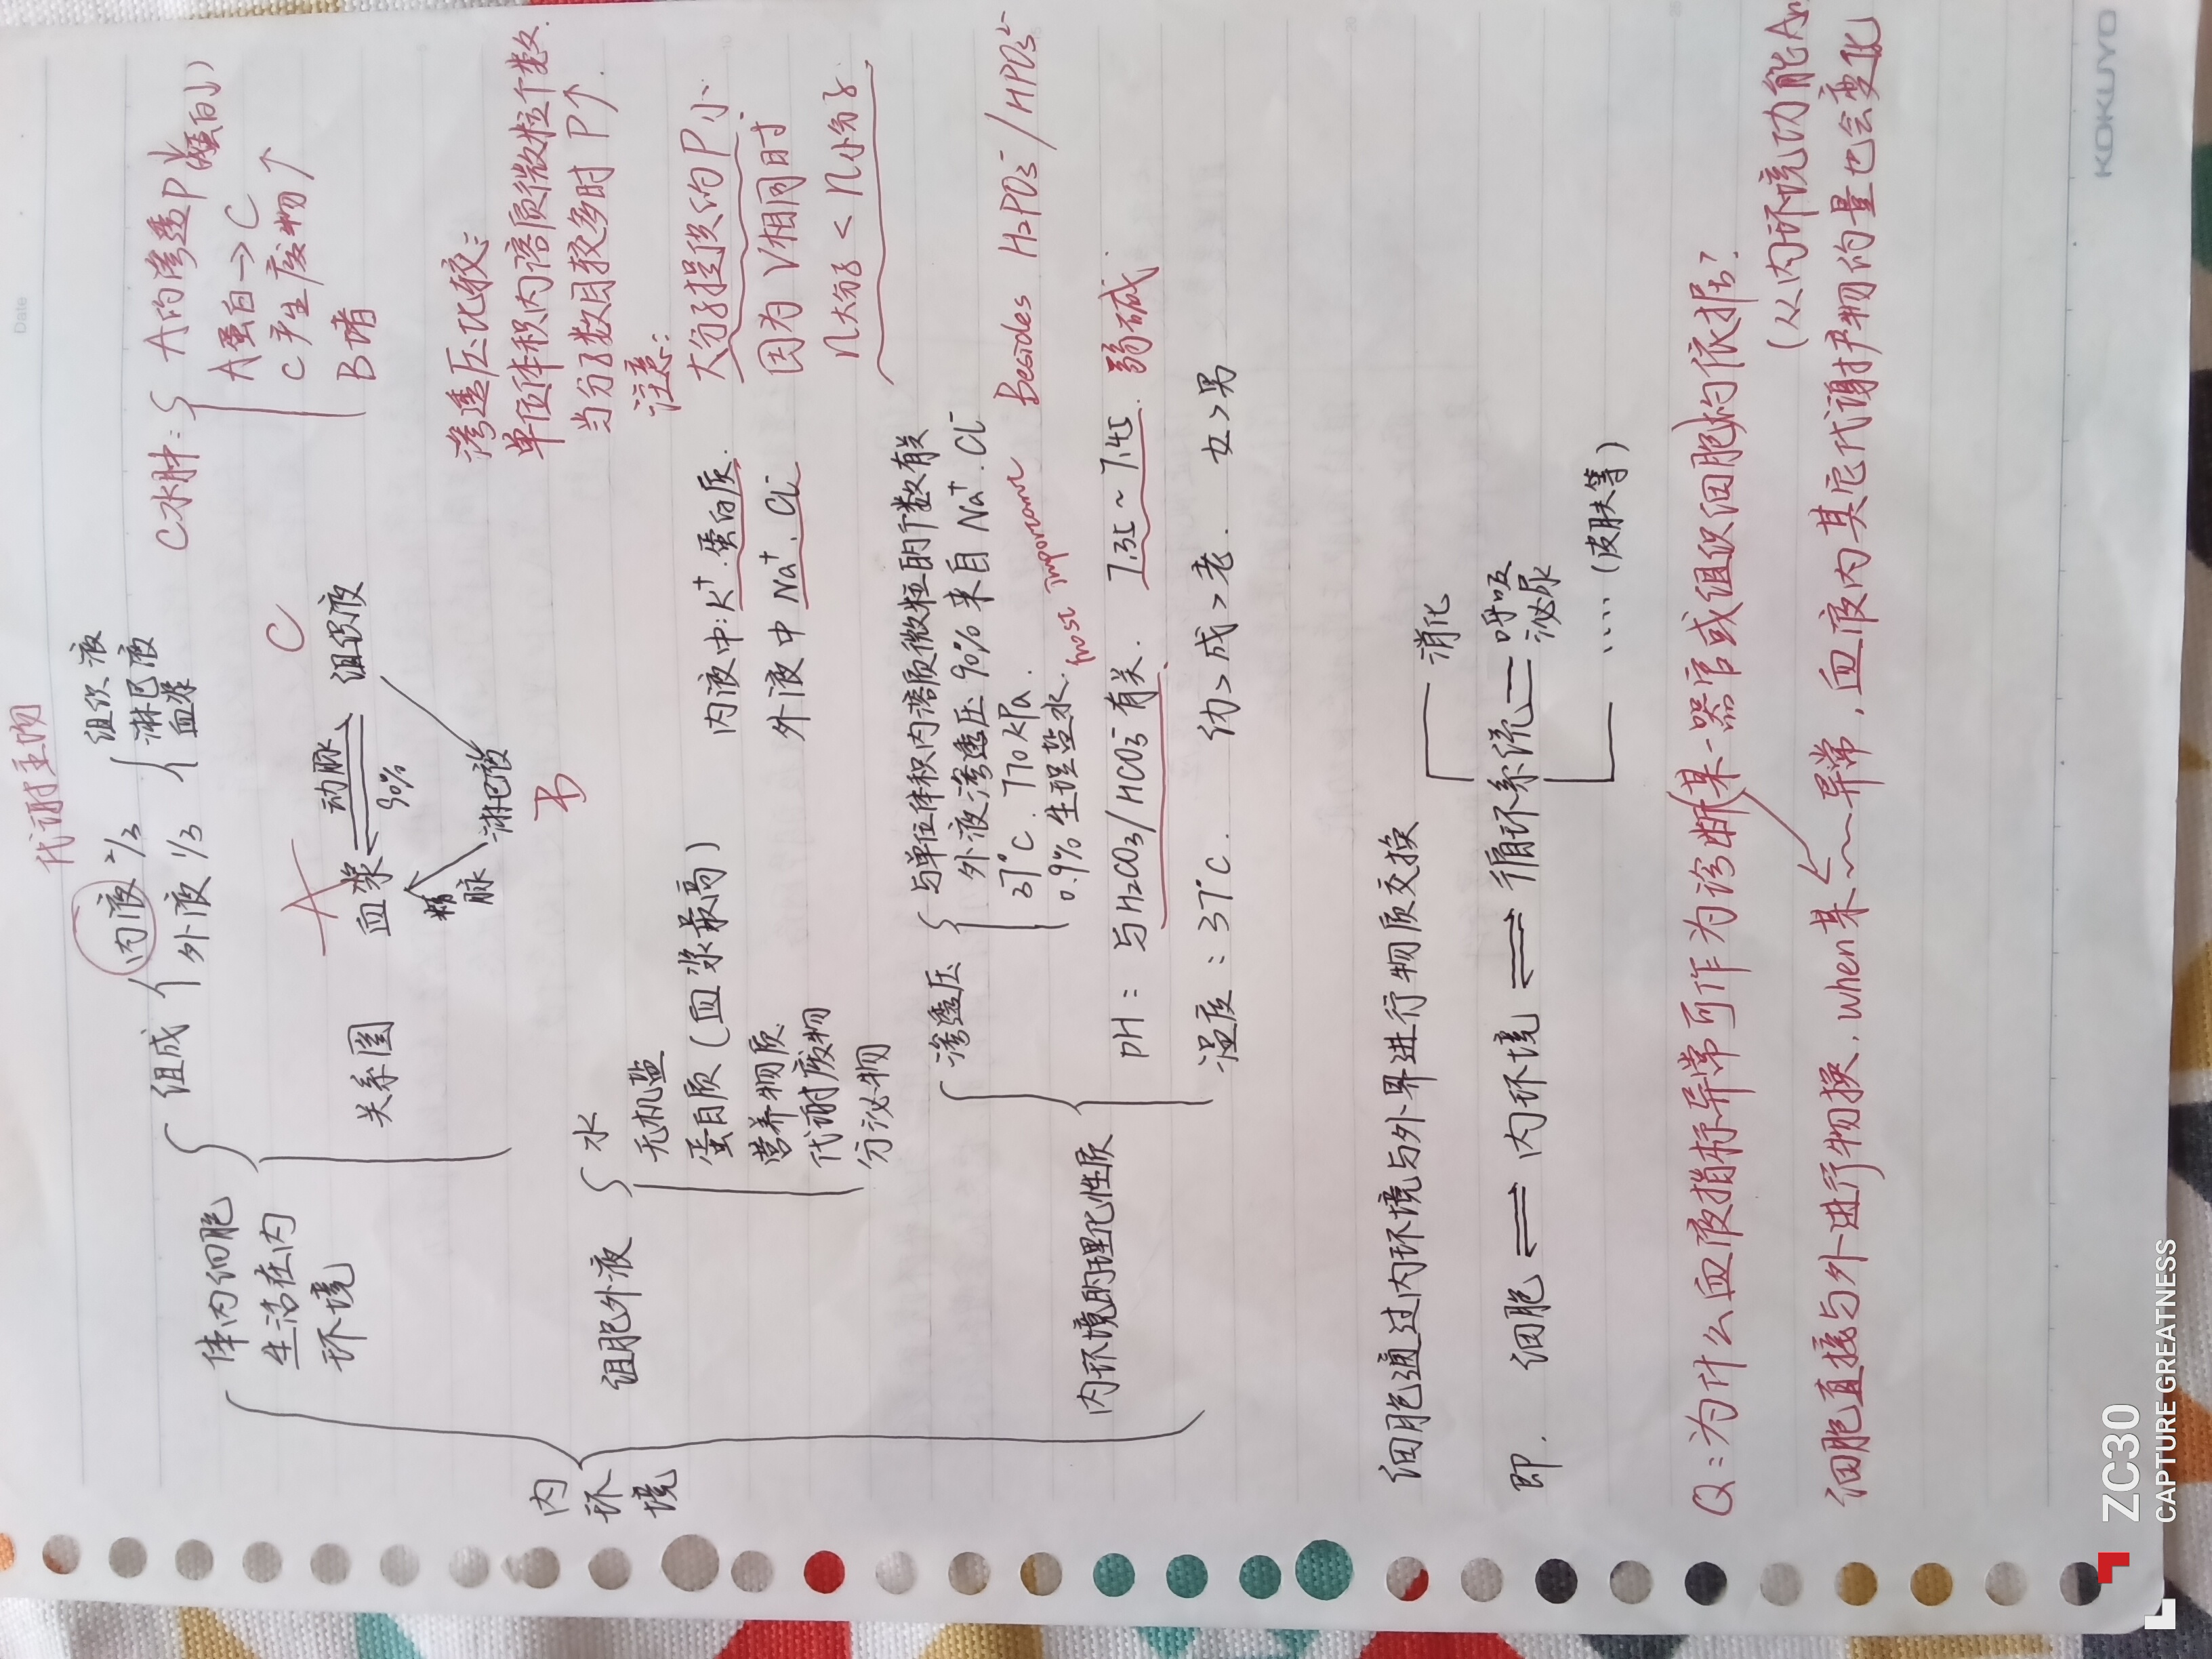 Date
代谢主场
内环境
体内细胞生活在内环境
组成
内液 2/3
外液 1/3
组织液
淋巴液
血浆
关系图
A
血浆
动脉
90%
组织液
C
静脉
淋巴液
B
C水肿:
A的渗透P
A蛋白→C
C产生废物↑
B堵
组胞外液
水
无机盐
蛋白质(血浆最高)
营养物质
代谢废物
分泌物
内液中:K⁺.蛋白质.
外液中Na⁺.Cl⁻
渗透压比较:
单位体积内溶质微粒个数.
当分子数目较多时 P↑.
注意:
大分子提供的P小
因为V相同时
n大分子 < n小分子.
内环境的理化性质
渗透压
与单位体积内溶质微粒的个数有关
外液渗透压90%来自Na⁺.Cl⁻
37°C. 770kPa
0.9%生理盐水.
most imporanve
Besides H₂PO₃⁻/HPO₃²⁻
pH: 与H₂CO₃/HCO₃⁻有关. 7.35~7.45. 弱碱.
温度:37°C. 幼>成>老. 女>男
细胞通过内环境与外界进行物质交换
即. 细胞 ⇌ 内环境 ⇌ 循环系统
消化
呼吸
泌尿
....(皮肤等)
Q:为什么血液指标异常可作为诊断某一器官或组织细胞的依据?
(从内环境功能An
细胞直接与外进行物换,when某~~异常,血液内其它代谢产物的量也会变化
KOKUYO
ZC30
CAPTURE GREATNESS